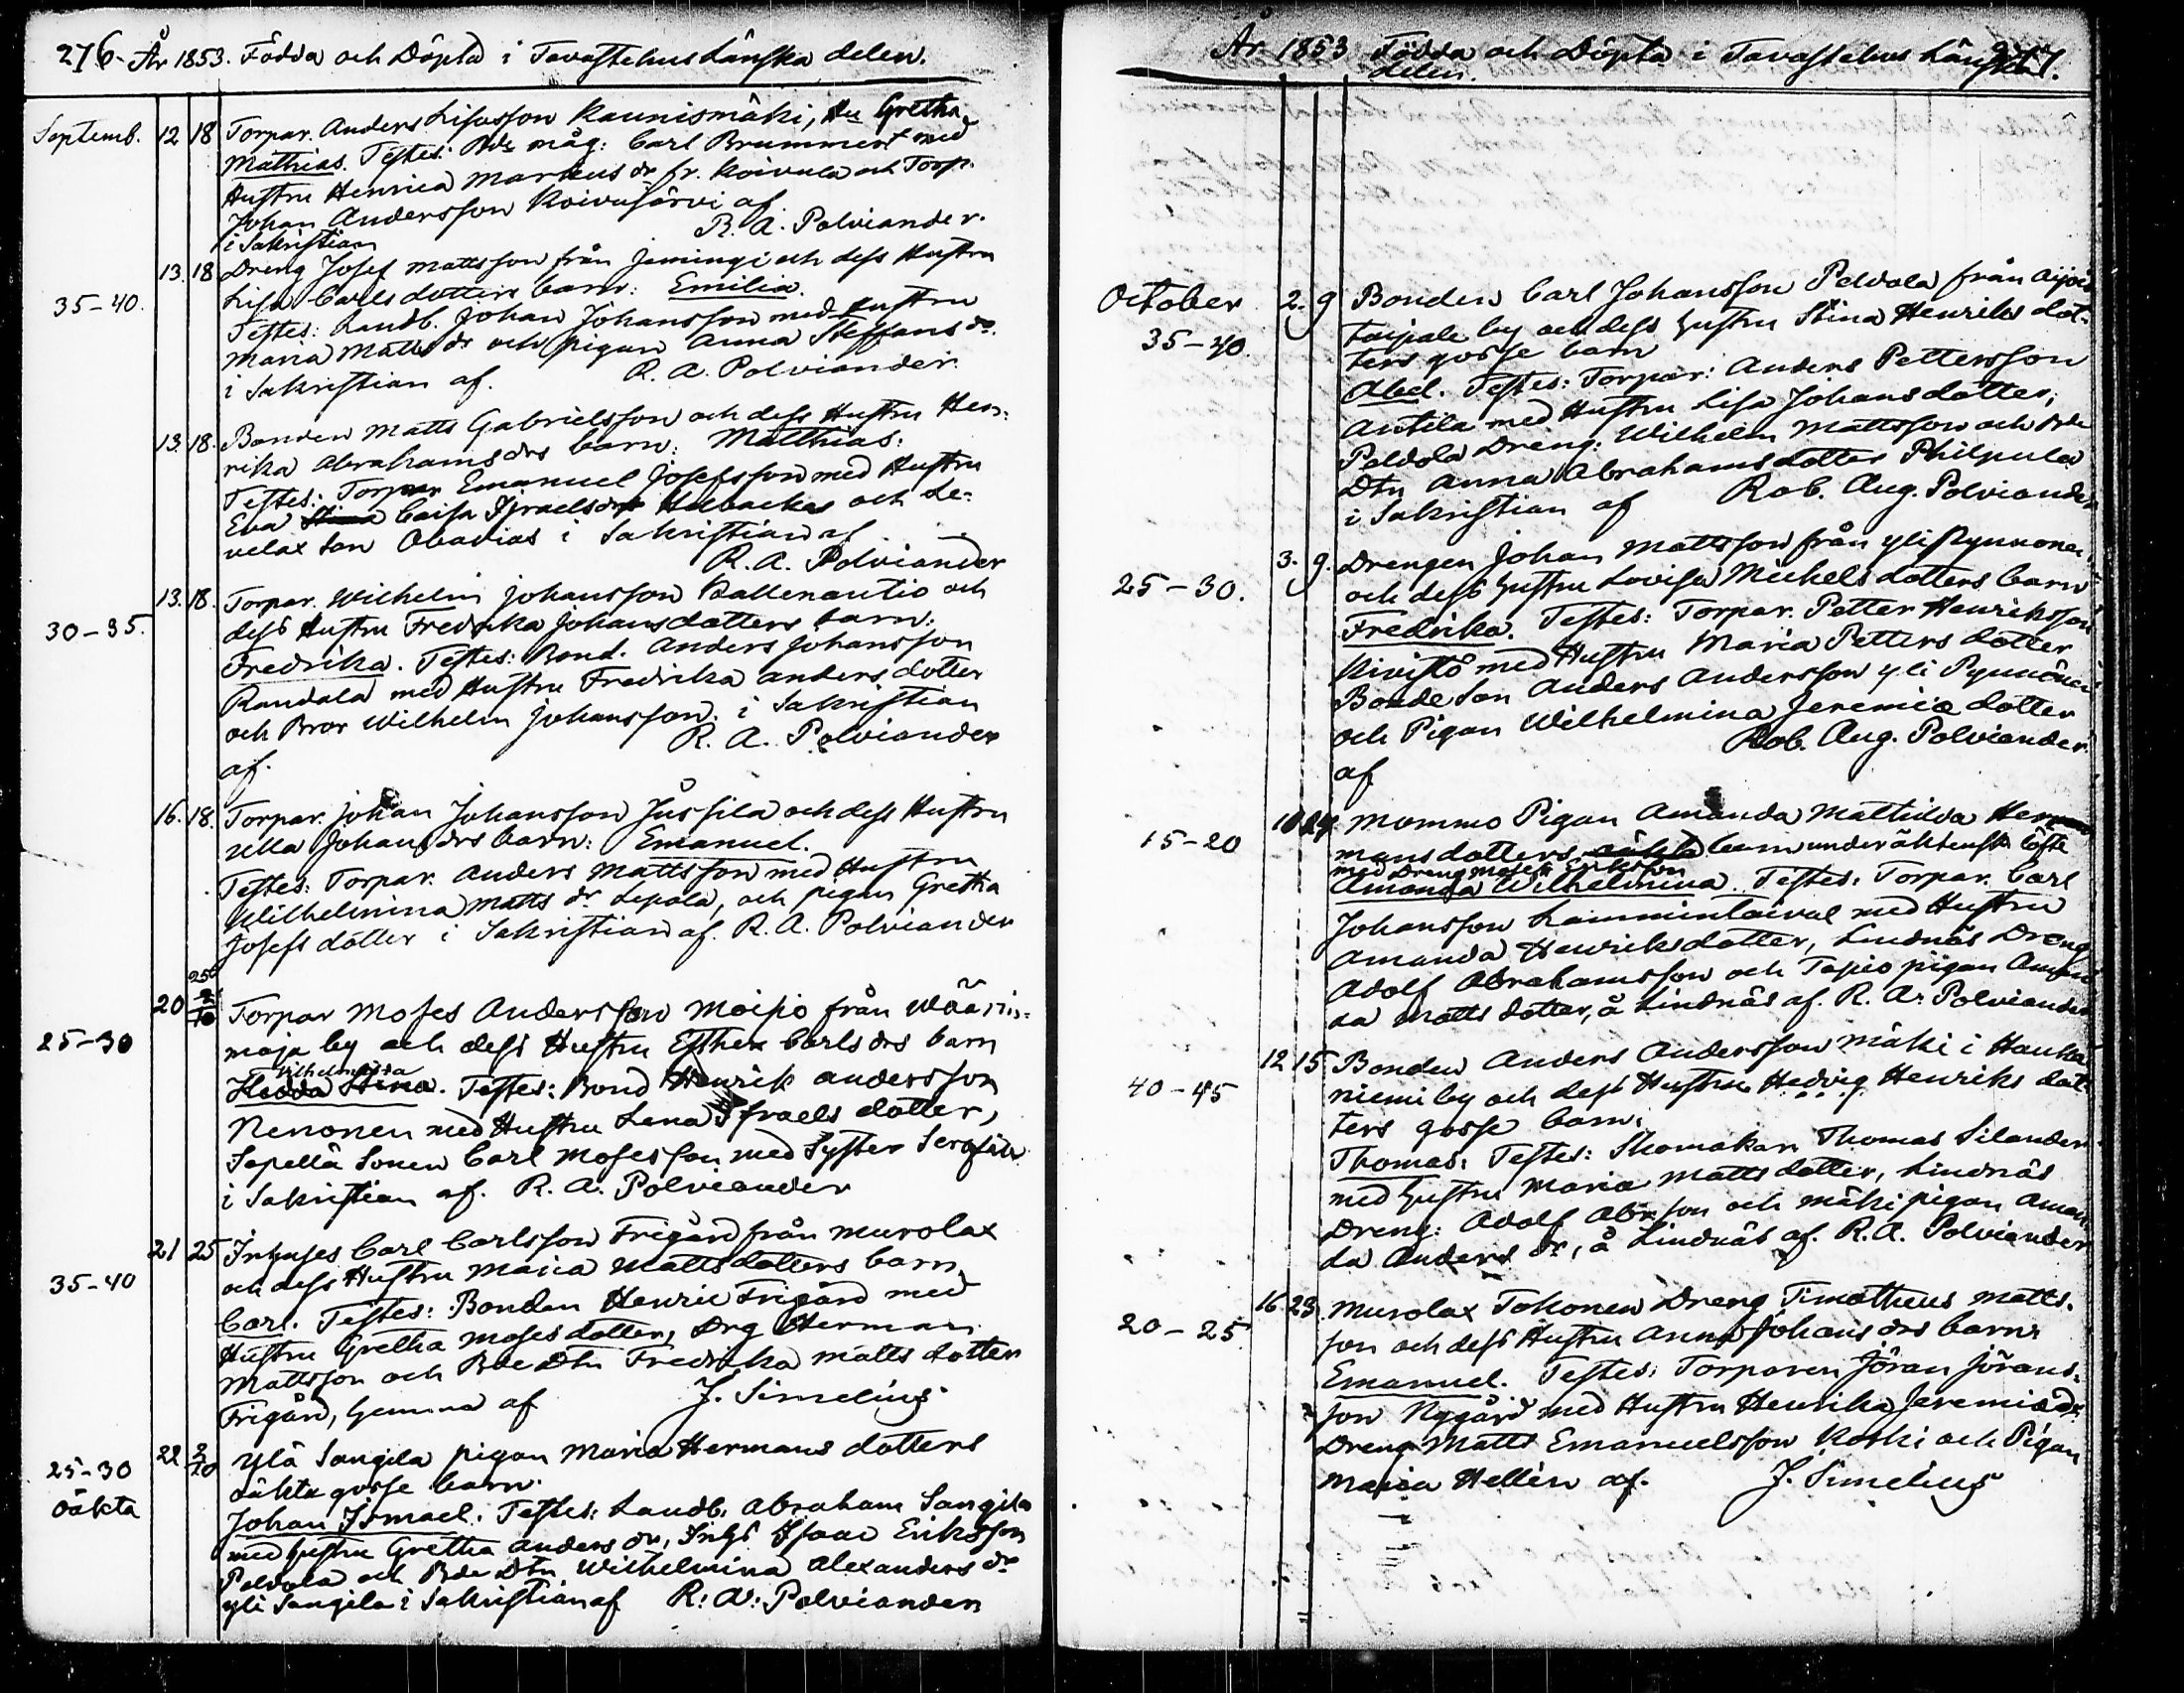 276. År 1853. Födda och Döpta i Tavastehus Länska delen.
Septemb. 12 18 Torpar. Anders Kaunismäki, Gretha
Mathias. Testes: Bde måg: Carl Brummert med
Hustru Henrica Marcus dr fr. Koivula och Torp.
Johan Andersson Koivujärvi af
i Sakristian R. A. Polviander.
13. 18 Dreng Josef Mattsson från Jemingi och dess Hustru
Lisa Carls dotters barn: Emilia.
35-40. Testes: Landb. Johan Johansson med Hustru
Maria Matts dr och pigan Anna Steffans dr.
i Sakristian af. R. A. Polviander.
13. 18. Bonden Matts Gabrielsson och dess Hustru Hen-
rika Abrahams drs barn: Matthias.
Testes: Torpar Emanuel Josefsson med Hustru
Eva Caisa Israels dr och Le-
velax son Abadias i Sakristian af
R. A. Polviander
13. 18. Torpar. Wilhelm Johansson Kallenautio och
30-35. dess Hustru Fredrika Johans dotters barn:
Fredrika. Testes: Bond. Anders Johansson
Randala med Hustru Fredrika Anders dotter
och Bror Wilhelm Johansson. i Sakristian
af. R. A. Polviander
16. 18. Torpar. Johan Johansson Jussila och dess Hustru
Ulla Johans drs barn: Emanuel.
Testes: Torpar. Anders Mattsson med Hustru
Wilhelmina Matts dr Lepola, och pigan Gretha
Josefs dotter i Sakristian af. R. A. Polviander
25
20 2/10 Torpar Moses Andersson Moisio från Wäärin-
25-30 maja by och dess Hustru Esther Carls drs barn
Vilhelmina
Hedda Stina. Testes: Bond Henrik Andersson
Nenonen med Hustru Lena Israels dotter,
Sapellä Sonen Carl Mosesson med Syster Serafina
i Sakristian af. R. A. Polviander
21 25 Inhyses Carl Carlsson Frigård från Murolax
35-40 och dess Hustru Maria Matts dotters barn
Carl. Testes: Bonden Henric Frigård med
Hustru Gretha Moses dotter, Drg Herman
Mattsson och Bde Dtn Fredrika Matts dotter
Frigård, hemma af J. Simelius
22 2/10 Ylä Sangila pigan Maria Hermans dotters
25-30 oäkta gosse barn.
oäkta Johan Ismael. Testes: Landb. Abraham Sangila
med hustru Gretha Anders dr, Inhs Isaac Eriksson
Poldola och Bde Dtn Wilhelmina Alexanders dr
Yli Sangila i Sakristian af R. A. Polviander
År 1853 Födda och Döpta i Tavastehus Länska 277.
delen.
October 2. 9 Bonden Carl Johansson Peldola från
35-40. taipale by och dess hustru Stina Henriks dot-
ters gosse barn
Abel. Testes: Torpar: Anders Pettersson
Antila med Hustru Lisa Johans dotter,
Peldola Dreng: Wilhelm Mattsson och Bde
Dtn Anna Abrahams dotter Philpula
i Sakristian af Rob. Aug. Polviander
3. 9. Drengen Johan Mattsson från Yli Pynnönen
25-30. och dess hustru Lovisa Michels dotters barn
Fredrika. Testes: Torpar. Petter Henriksson
Kivistö med Hustru Maria Petters dotter
Bonde Son Anders Andersson Yli Pynnönen
och Pigan Wilhelmina Jeremiæ dotter
af Rob. Aug. Polviander
15-20 Mommo Pigan Amanda Mathilda Her-
mans dotters oäkta barn under äktensk. löfte
med Dreng Moses Eriksson
Amanda Wilhelmina. Testes: Torpar. Carl
Johansson Lamminlaival med Hustru
Amanda Henriks dotter, Lindnäs Dreng
Adolf Abrahamsson och Tapio pigan Aman-
da Matts dotter, å Lindnäs af. R. A. Polviander
12 15 Bonden Anders Andersson Mäki i Hauka
40-45 niemi by och dess Hustru Hedvig Henriks dot-
ters gosse barn.
Thomas. Testes: Skomakar Thomas Silander
med hustru Maria Matts dotter, Lindnäs
Dreng: Adolf Abr. son och Mäki pigan Aman-
da Anders dr, å Lindnäs af. R. A. Polviander
16 23. Murolax Tokonen Dreng Timotheus Matts-
20-25 son och dess Hustru Anna Johans drs barn
Emanuel. Testes: Torparen Jöran Jörans-
son Nygård med Hustru Henrika Jeremiæ dr
Dreng Matts Emanuelsson Koski och Pigan
Maria Hellin af. J. Simelius